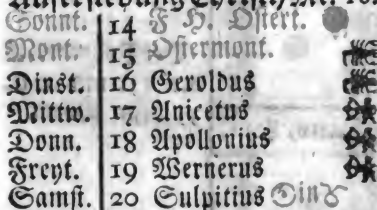 Auferstehung Christi, Mr. 16.
Sonnt. 14 F H. Ostert.
Mont. 15 Ostermont.
Dinst. 16 Geroldus
Mittw. 17 Anicetus
Donn. 18 Apollonius
Freyt. 19 Wernerus
Samst. 20 Sulpitius ☉in♉